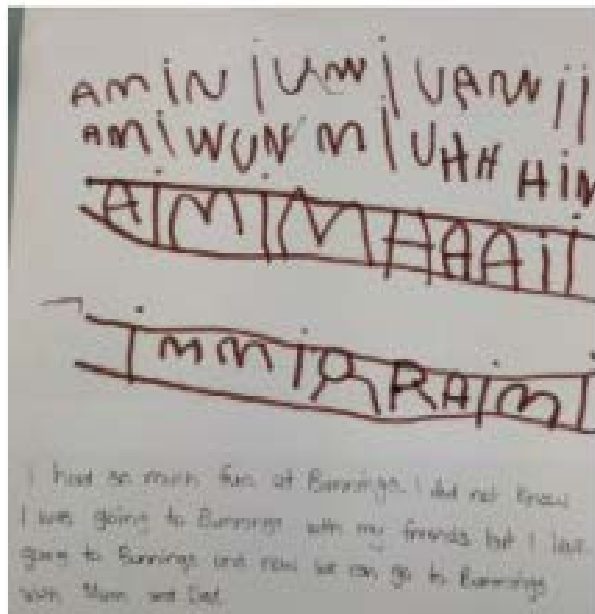 AMiN iUNi UANN ii
AMiWUN M i UHH HiM
AiMiMHAAii
immiRRAimi
I had so much fun at Bunnings. I did not know
I was going to Bunnings with my friends but I love
going to Bunnings and now we can go to Bunnings
with Mum and Dad.